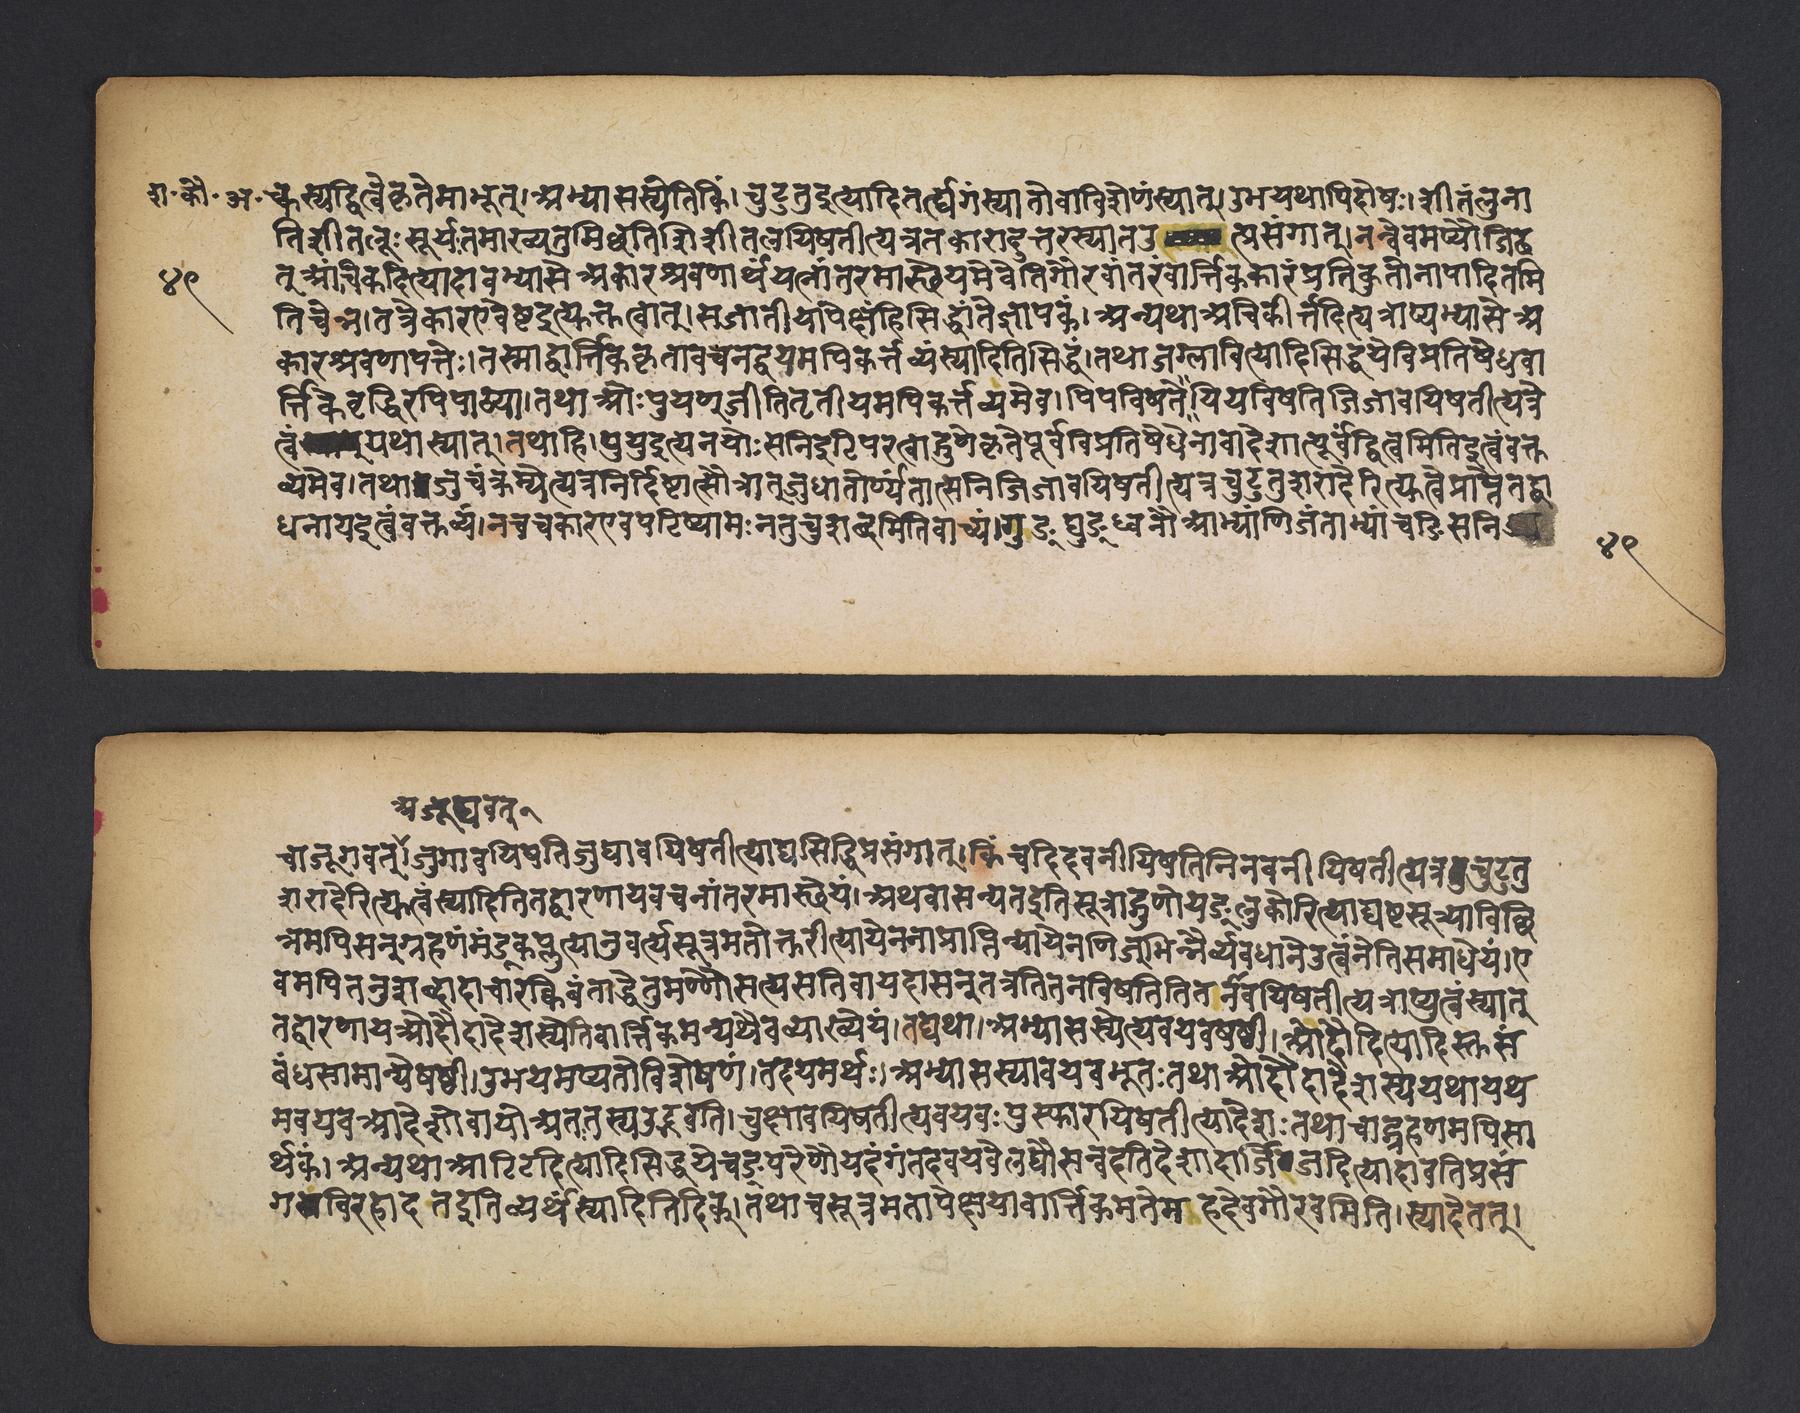 श॰ कौ॰ अ॰
४९
च्कस्यद्वित्वेकृतेमाभूत्।अभ्यासस्येतिकिं।चुटुतुदुत्यादितर्त्द्यगंस्यातोवाविशेणंस्यात्।उभयथापिदोषः।शीतंलुना
तिशीतलूःसूर्यःतमाख्यतुमिछतिशिशीतलयिषतीत्यत्रतकारादुत्तरस्यातउ त्यसंगात्।नन्वेवमप्यौजिढ
तूआंचिकदित्यादावभ्यासे अकारश्रवणार्थंयत्नांतरमास्थेयमेवेतिगौरवांतरंवार्त्तिककारंप्रतिकुतोनापादितमि
तिचेन्न।तत्रैकारएवेष्टदुत्यक्तत्वात्।सजातीयापेक्षंहिसिद्धांतेज्ञापकं।अन्यथाअचिकीर्त्तदित्यत्राप्यभ्यासे अ
कारश्रवणापत्तेः।तस्माद्वार्त्तिककृतावचनद्वयमपिकर्त्तव्यंस्यादितिसिद्धं।तथाजग्लावित्यादिसिद्धयेविप्रतिषेधवा
र्त्तिकेवृद्धिरपिपाठ्या।तथा ओःपुयण्जीतितृतीयमपिकर्त्तव्यमेव।पिपविषते यियविषति जिजावयिषतीत्यत्रे
त्वं यथास्यात्।तथाहि।पुपुदुत्यनयोःसनिदुटिपरत्वाद्गुणेकृतेपूर्वविप्रतिषेधेनावादेशात्पूर्वंद्वित्वमितिदुत्वंवक्त
व्यमेव।तथा जुचंक्रम्येत्यत्रनिर्दिष्टात्सौत्रात्जुधातोर्ण्यंतात्सनिजिजावयिषतीत्यत्रचुटुतुशरादेरित्यत्वेप्राप्नेतद्बा
धनायदुत्वंवक्तव्यं।नचचकारएवपटिष्यामःनतुचुशब्दमितिवाच्यं।गुङ् घुङ्ध्वनौ आभ्यांणिजंताभ्यांचङिसनि
४९
अजूघवत्१
चाजूगवत्।जुगावयिषतिजुघावयिषतीत्याद्यसिद्धिप्रसंगात्।किंचदिदवनीयिषतिनिनवनीयिषतीत्यत्र चुटुतु
शरादेरित्यत्वंस्यादितितद्वारणायवचनांतरमास्थेयं।अथवासन्यतदुतिसूत्राद्गुणोयङ्लुकोरित्याद्यष्टसूत्र्याविछि
न्नमपिसन्ग्रहणंमंडूकप्लुत्यानुवर्त्यसूत्रमतोक्तरीत्यायेननाप्राप्निन्यायेनणिज्भिन्नैर्व्यवधानेउत्वंनेतिसमाधेयं।ए
वमपितनुशब्दादाचारक्विबंताद्धेतुमण्णौसत्यसतिवायदासन्तत्रतितनविषतितितर्नवयिषतीत्यत्राप्युत्वंस्यात्
तद्वारणायओदौदादेशस्येतिवार्त्तिकमन्यथैवव्याख्येयं।तद्यथा।अभ्यासस्येत्यवयवषष्ठी।ओदौदित्यादिस्तसं
बंधसामान्येषष्ठी।उभयमप्यतोविशेषणं।तदयमर्थः।अभ्यासस्यावयवभूतःतथा ओदौदादेशस्ययथायथ
मवयव आदेशोवायो अततस्यउद्भवति।चुक्षावयिषतीत्यवयवःपुस्फारयिषतीत्यादेशःतथाचाद्ग्रहणमपिसा
र्थकं।अन्यथा आटिटदित्यादिसिद्धयेचङ्परेणौयदंगंतदवयवेलघौसन्वदतिदेशादार्जिजदित्यादावतिप्रसं
ग विरहादतदुतिव्यर्थंस्यादितिदिक्।तथाचसूत्रमतापेक्षयावार्त्तिकमतेमहदेवगौरवमिति।स्यादेतत्।